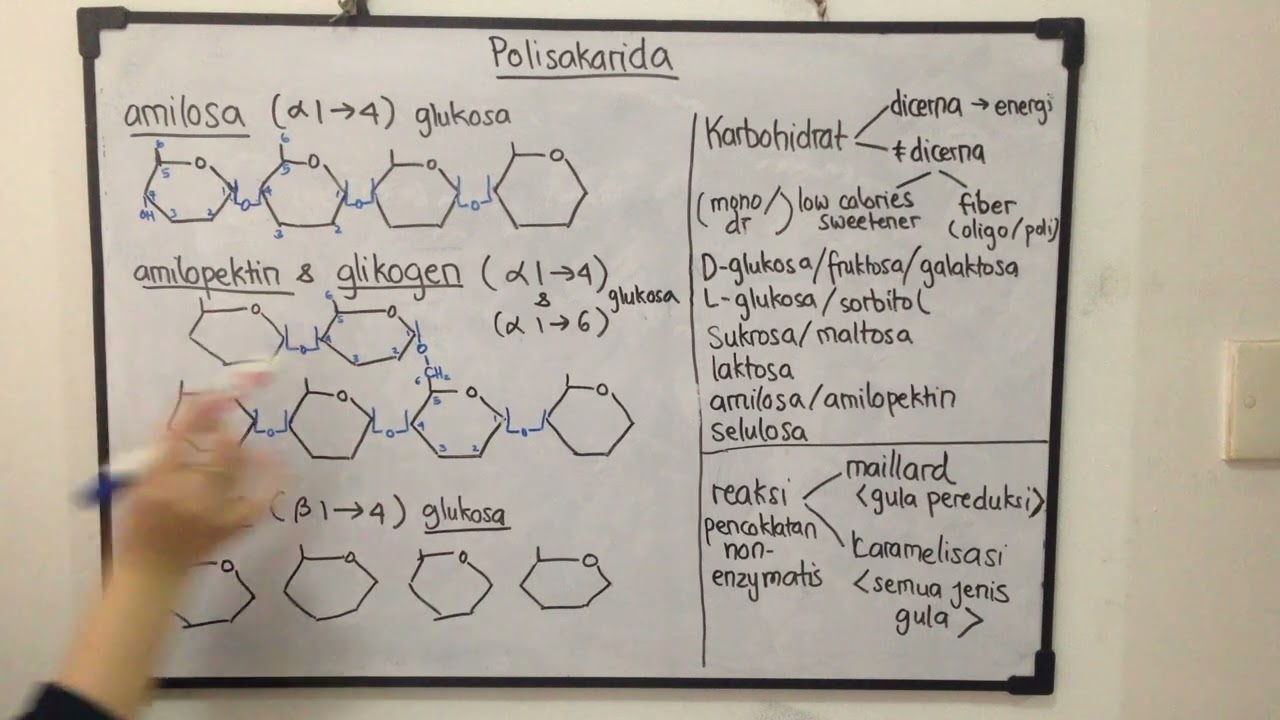 Polisakarida
amilosa (α1→4) glukosa
6 6
5 O 5 O O O
4 1 4 1
OH 3 2 O 3 2 O O
amilopektin & glikogen (α1→4)
& glukosa
(α1→6)
6
O 5 O
O 4 1
3 2 O
6 CH₂
O 5 O O
O O 4 1 O
3 2
(β1→4) glukosa
O O O O
Karbohidrat
dicerna → energi
≠ dicerna
(mono/
di)
low calories
sweetener
fiber
(oligo/poli)
D-glukosa/fruktosa/galaktosa
L-glukosa/sorbitol
Sukrosa/maltosa
laktosa
amilosa/amilopektin
selulosa
reaksi
pencoklatan
non-
enzymatis
maillard
<gula pereduksi>
karamelisasi
<semua jenis
gula>